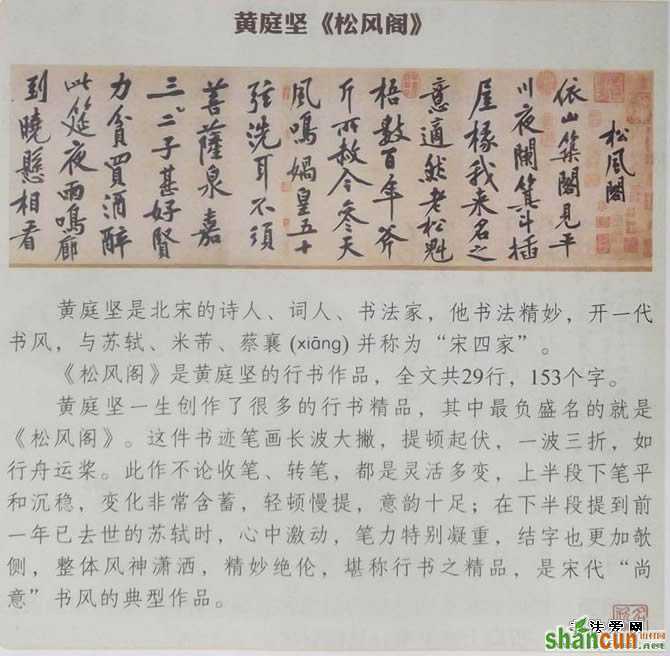 黄庭坚《松风阁》
松風閣
依山築閣見平
川夜闌箕斗插
屋椽我来名之
意適然老松魁
梧數百年斧
斤所赦今參天
風鳴媧皇五十
弦洗耳不須
菩薩泉嘉
三二子甚好賢
力貧買酒醉
此筵夜雨鳴廊
到曉懸相看
黄庭坚是北宋的诗人、词人、书法家，他书法精妙，开一代
书风，与苏轼、米芾、蔡襄 (xiāng) 并称为“宋四家”。
《松风阁》是黄庭坚的行书作品，全文共29行，153个字。
黄庭坚一生创作了很多的行书精品，其中最负盛名的就是
《松风阁》。这件书迹笔画长波大撇，提顿起伏，一波三折，如
行舟运桨。此作不论收笔、转笔，都是灵活多变，上半段下笔平
和沉稳，变化非常含蓄，轻顿慢提，意韵十足；在下半段提到前
一年已去世的苏轼时，心中激动，笔力特别凝重，结字也更加欹
侧，整体风神潇洒，精妙绝伦，堪称行书之精品，是宋代“尚
意”书风的典型作品。
法爱网
shancun